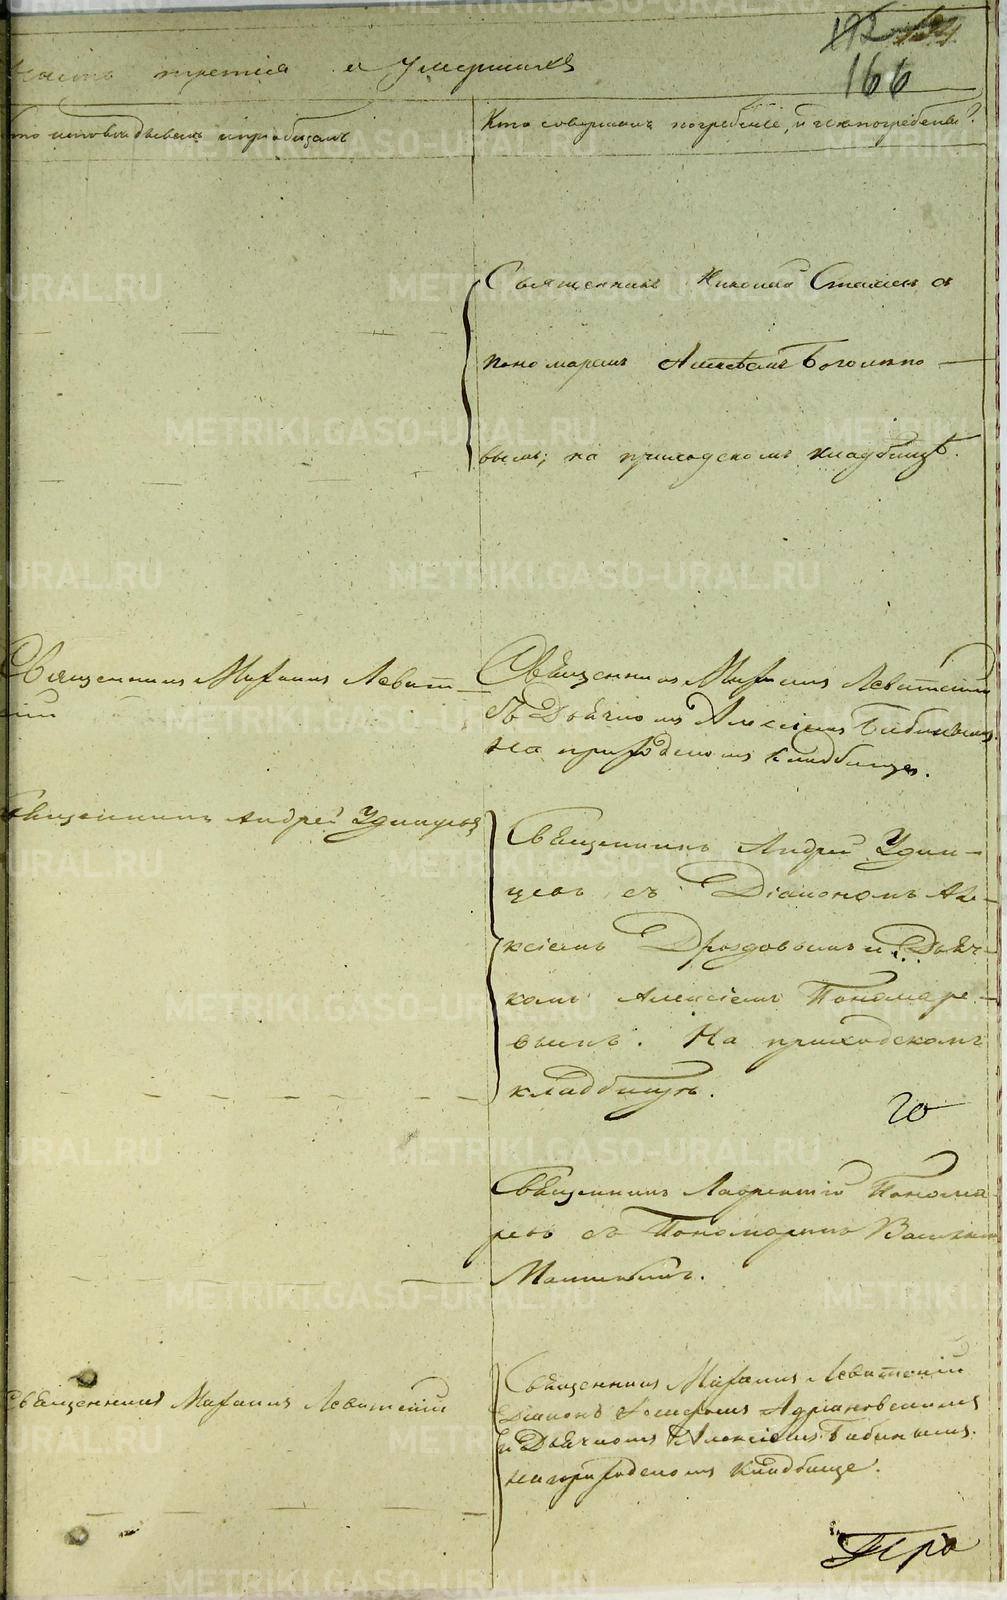 192
166
Часть третія о Умершихъ
Кто исповѣдывалъ и пріобщалъ
Кто совершалъ погребеніе, и гдѣ погребены?
Священникъ Николай съ
пономаремъ Алексѣемъ Боголюбо
вымъ; на приходскомъ кладбищѣ.
Священникъ Михаилъ Левит-
скій
Священникъ Михаилъ Левитскій
съ Дьячкомъ Алексіемъ Бибиковымъ
на приходскомъ кладбище.
Священникъ Андрей Удинцевъ
Священникъ Андрей Удин-
цевъ съ Діакономъ Але-
ксіемъ Дроздовымъ и Дьяч-
комъ Алексіемъ Пономаре-
вымъ. На приходскомъ
кладбищѣ.
20
Священникъ Лаврентій Понома
ревъ съ Пономаремъ
Священникъ Михаилъ Левитскій
Священникъ Михаилъ Левитскій
Діаконъ Адріановскимъ
и Дьячкомъ Алексіемъ Бибиковымъ
на приходскомъ кладбище.
METRIKI.GASO-URAL.RU